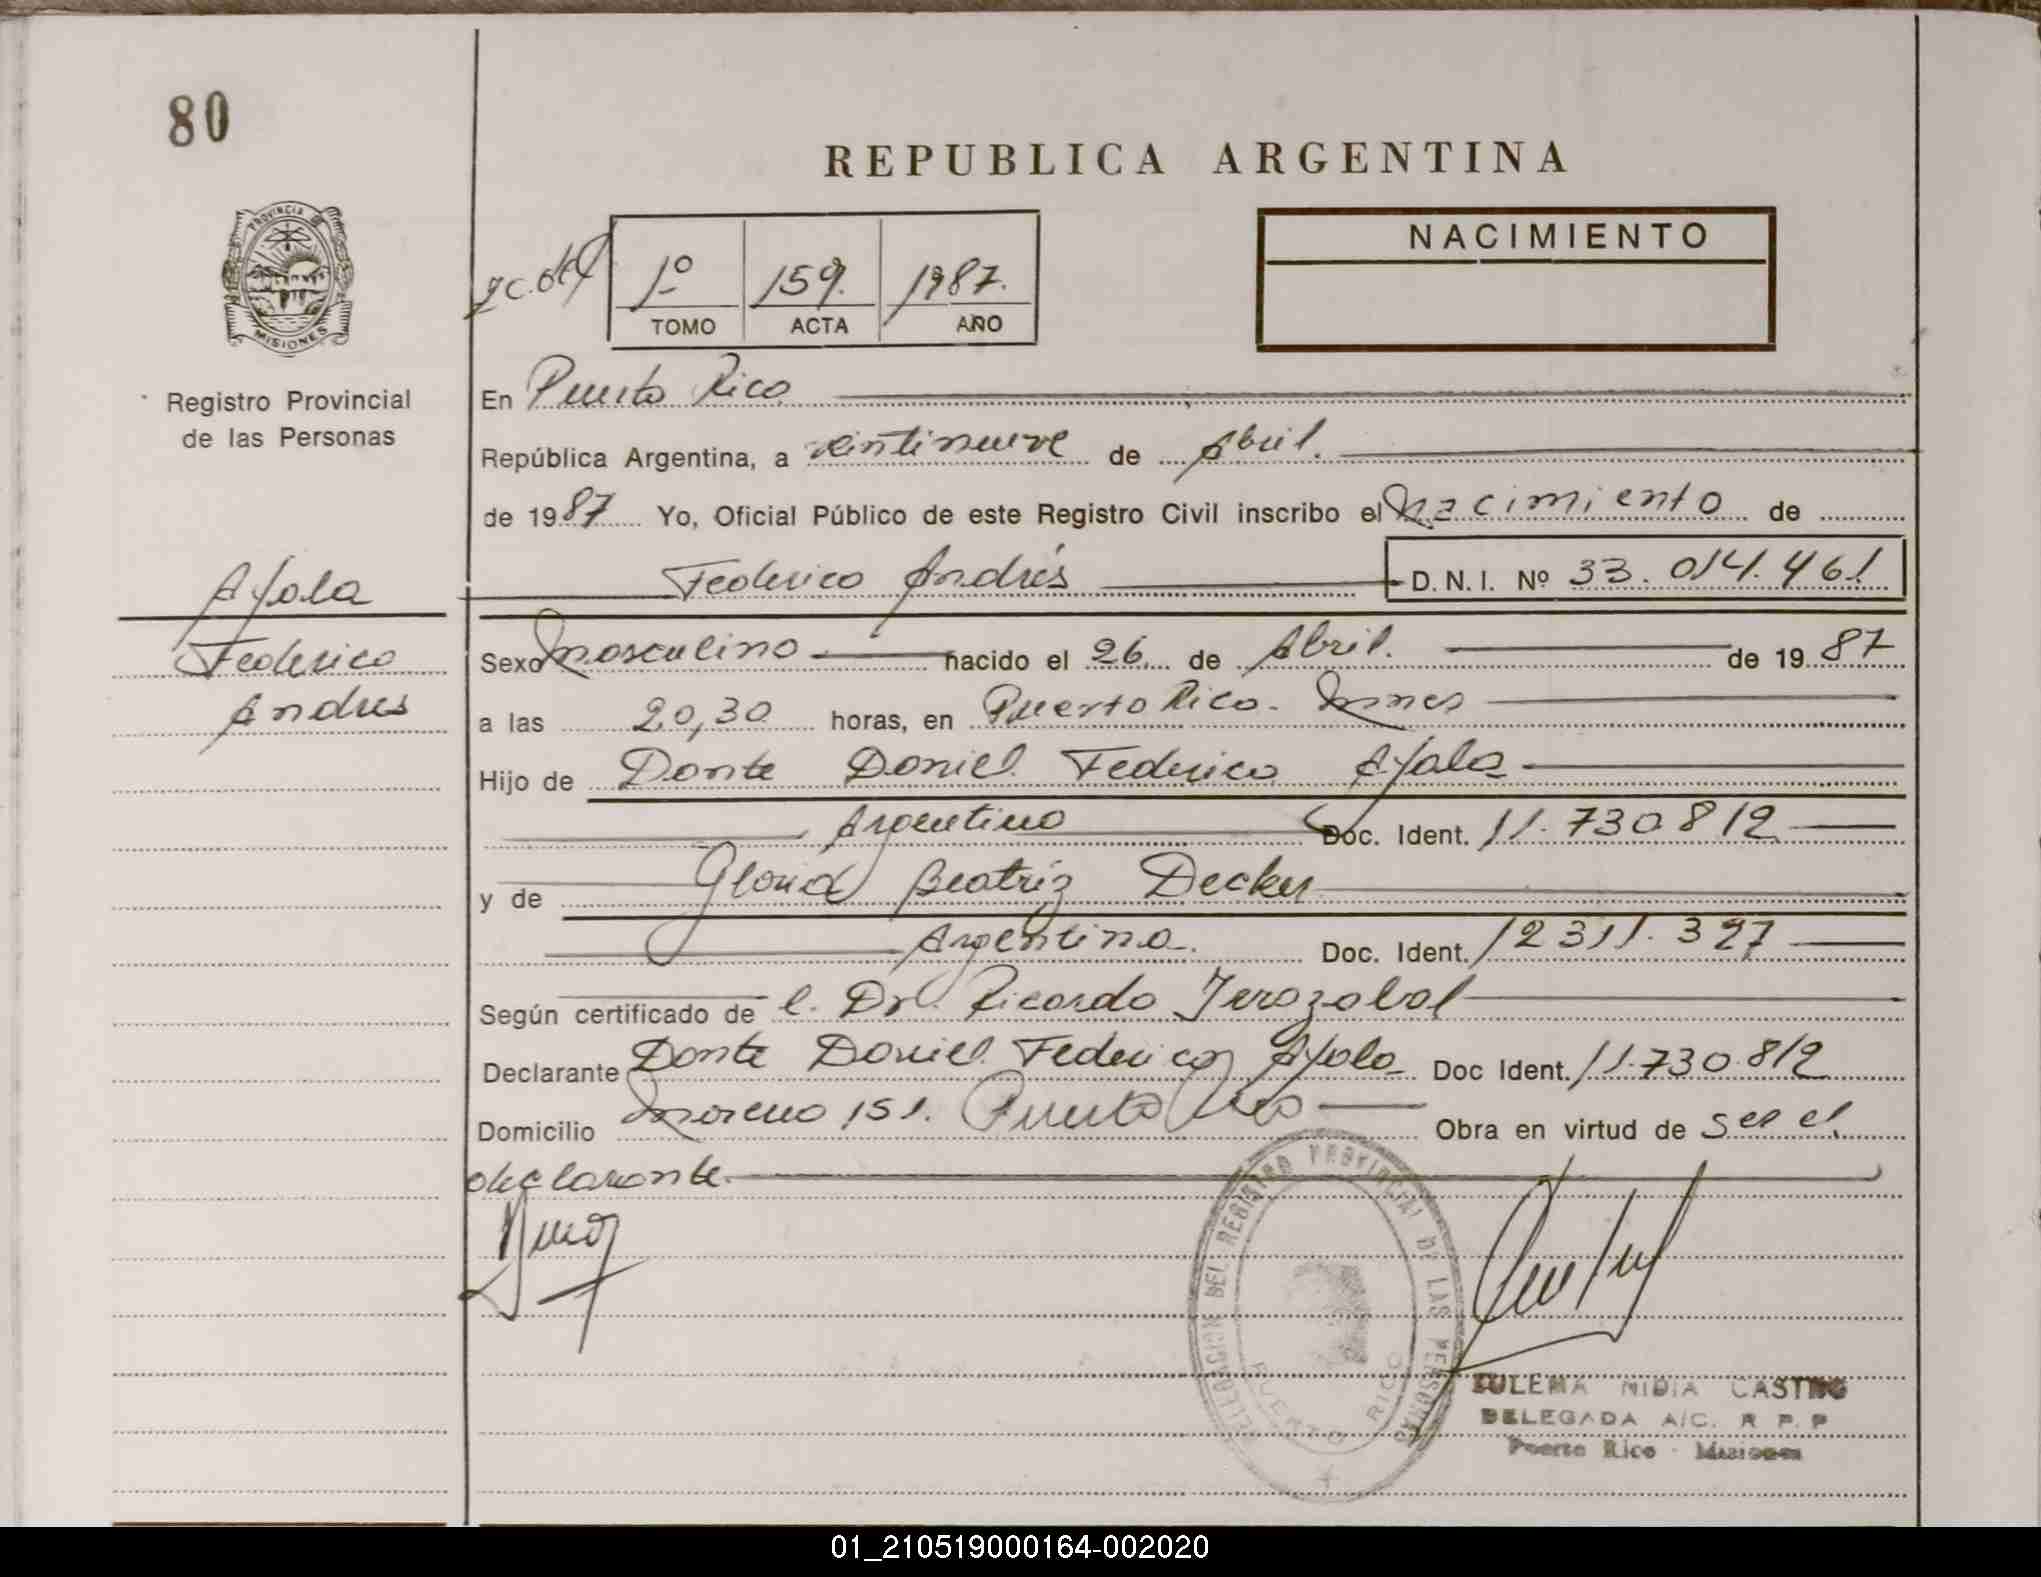 80
REPUBLICA ARGENTINA
PROVINCIA
MISIONES
Registro Provincial
de las Personas
1º 159. 1987.
TOMO ACTA AÑO
NACIMIENTO
En Puerto Rico
República Argentina, a veintinueve de Abril.
de 1987 Yo, Oficial Público de este Registro Civil inscribo el Nacimiento de
Federico Andrés D.N.I. Nº 33.014.461
Ayola
Federico
Andres
Sexo Masculino nacido el 26 de Abril. de 1987
a las 20,30 horas, en Puerto Rico. Mnes
Hijo de Dante Daniel Federico Ayala
Argentino Doc. Ident. 11.730.812
y de Gloria Beatriz Decker
Argentina. Doc. Ident. 12311.327
Según certificado de l. Dr. Ricardo
Declarante Dante Daniel Federico Ayala Doc Ident. 11.730.812
Domicilio Moreno 151. Puerto Rico Obra en virtud de ser el
declarante.
DELEGACION DEL REGISTRO PROVINCIAL DE LAS PERSONAS
PUERTO RICO
ZULEMA NIDIA CASTRO
DELEGADA A/C. R. P. P
Puerto Rico - Misiones
01_210519000164-002020